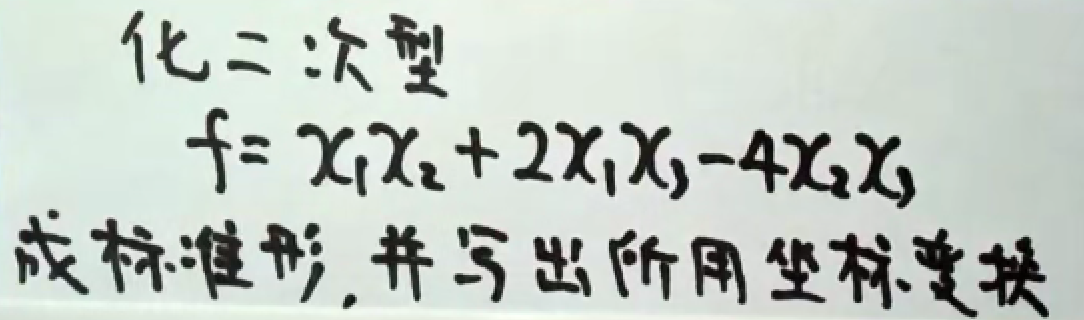 化二次型
f = x₁x₂ + 2x₁x₃ - 4x₂x₃
成标准形,并写出所用坐标变换